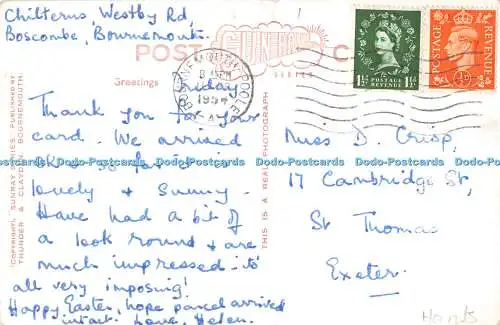 Chilterns, Westby Rd,
Boscombe, Bournemouth.
POST SUNRAY C
SERIES
Greetings
Friday
Thank you for your
card. We arrived
lovely & Sunny.
Have had a bit of
a look round & are
much impressed – it's
all very imposing!
Happy Easter, hope parcel arrived
intact. Love, Helen.
"COPYRIGHT, SUNRAY SERIES, PUBLISHED BY
THUNDER & CLAYDEN, BOURNEMOUTH."
THIS IS A REAL PHOTOGRAPH
BOURNEMOUTH POOLE
1954
1½D POSTAGE REVENUE 1½D
POSTAGE REVENUE
½D
Miss D. Crisp,
17 Cambridge St,
St Thomas
Exeter.
Dodo-Postcards Dodo-Postcards Dodo-Postcards Dodo-Postcards Dodo-Postcards Dodo-Postcards